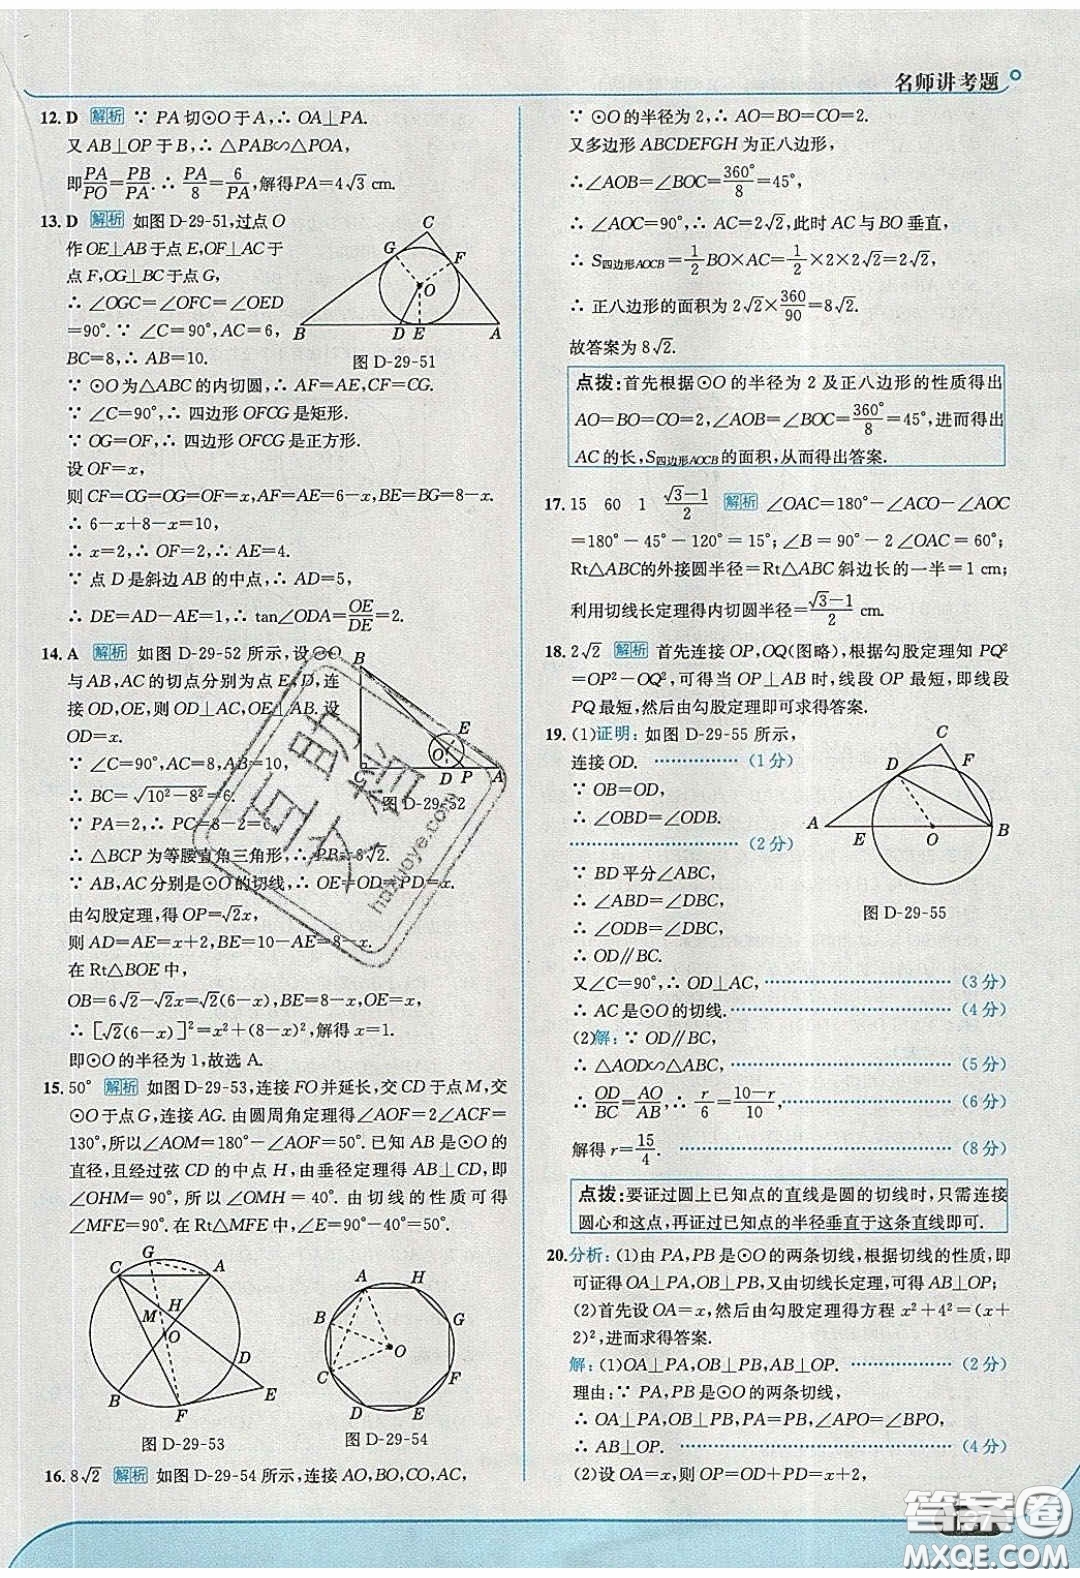 名师讲考题
12. D 解析 ∵ PA切⊙O于A,∴ OA⊥PA.
又AB⊥OP于B,∴ △PAB∽△POA,
即PA/PO=PB/PA.∴ PA/8=6/PA,解得PA=4√3 cm.
13. D 解析 如图D-29-51,过点O
作OE⊥AB于点E,OF⊥AC于
点F,OG⊥BC于点G,
∴ ∠OGC=∠OFC=∠OED
=90°.∵ ∠C=90°,AC=6,
BC=8,∴ AB=10.
C
G
F
O
B
D
E
A
图D-29-51
∵ ⊙O为△ABC的内切圆,∴ AF=AE,CF=CG.
∵ ∠C=90°,∴ 四边形OFCG是矩形.
∵ OG=OF,∴ 四边形OFCG是正方形.
设OF=x,
则CF=CG=OG=OF=x,AF=AE=6-x,BE=BG=8-x.
∴ 6-x+8-x=10,
∴ x=2,∴ OF=2,∴ AE=4.
∵ 点D是斜边AB的中点,∴ AD=5,
∴ DE=AD-AE=1,∴ tan∠ODA=OE/DE=2.
14. A 解析 如图D-29-52所示,设⊙O
与AB,AC的切点分别为点E,D,连
接OD,OE,则OD⊥AC,OE⊥AB.设
OD=x.
∵ ∠C=90°,AC=8,AB=10,
∴ BC=√(10²-8²)=6.
∵ PA=2,∴ PC=8-2=6,
B
E
O
C
D
P
A
图D-29-52
∴ △BCP为等腰直角三角形,∴ PB=6√2.
∵ AB,AC分别是⊙O的切线,∴ OE=OD=PD=x.
由勾股定理,得OP=√2x,
则AD=AE=x+2,BE=10-AE=8-x.
在Rt△BOE中,
OB=6√2-√2x=√2(6-x),BE=8-x,OE=x,
∴ [√2(6-x)]²=x²+(8-x)²,解得x=1.
即⊙O的半径为1,故选A.
15. 50° 解析 如图D-29-53,连接FO并延长,交CD于点M,交
⊙O于点G,连接AG.由圆周角定理得∠AOF=2∠ACF=
130°,所以∠AOM=180°-∠AOF=50°.已知AB是⊙O的
直径,且经过弦CD的中点H,由垂径定理得AB⊥CD,即
∠OHM=90°,所以∠OMH=40°.由切线的性质可得
∠MFE=90°.在Rt△MFE中,∠E=90°-40°=50°.
G
C
A
M
H
O
D
E
B
F
图D-29-53
A
H
B
G
O
C
F
D
E
图D-29-54
16. 8√2 解析 如图D-29-54所示,连接AO,BO,CO,AC,
∵ ⊙O的半径为2,∴ AO=BO=CO=2.
又多边形ABCDEFGH为正八边形,
∴ ∠AOB=∠BOC=360°/8=45°,
∴ ∠AOC=90°,∴ AC=2√2,此时AC与BO垂直,
∴ S四边形AOCB=1/2BO×AC=1/2×2×2√2=2√2,
∴ 正八边形的面积为2√2×360/90=8√2.
故答案为8√2.
点拨:首先根据⊙O的半径为2及正八边形的性质得出
AO=BO=CO=2,∠AOB=∠BOC=360°/8=45°,进而得出
AC的长,S四边形AOCB的面积,从而得出答案.
17. 15 60 1 (√3-1)/2 解析 ∠OAC=180°-∠ACO-∠AOC
=180°-45°-120°=15°;∠B=90°-2∠OAC=60°;
Rt△ABC的外接圆半径=Rt△ABC斜边长的一半=1 cm;
利用切线长定理得内切圆半径=(√3-1)/2 cm.
18. 2√2 解析 首先连接OP,OQ(图略),根据勾股定理知PQ²
=OP²-OQ²,可得当OP⊥AB时,线段OP最短,即线段
PQ最短,然后由勾股定理即可求得答案.
19. (1)证明:如图D-29-55所示,
连接OD. ……………(1分)
∵ OB=OD,
∴ ∠OBD=∠ODB.
……………(2分)
∵ BD平分∠ABC,
∴ ∠ABD=∠DBC.
∴ ∠ODB=∠DBC,
∴ OD∥BC.
C
D
F
A
E
O
B
图D-29-55
又∠C=90°,∴ OD⊥AC,……………(3分)
∴ AC是⊙O的切线.……………(4分)
(2)解:∵ OD∥BC,
∴ △AOD∽△ABC,……………(5分)
∴ OD/BC=AO/AB,∴ r/6=(10-r)/10,……………(6分)
解得r=15/4.……………(8分)
点拨:要证过圆上已知点的直线是圆的切线时,只需连接
圆心和这点,再证过已知点的半径垂直于这条直线即可.
20. 分析:(1)由PA,PB是⊙O的两条切线,根据切线的性质,即
可证得OA⊥PA,OB⊥PB,又由切线长定理,可得AB⊥OP;
(2)首先设OA=x,然后由勾股定理得方程x²+4²=(x+
2)²,进而求得答案.
解:(1)OA⊥PA,OB⊥PB,AB⊥OP.……………(2分)
理由:∵ PA,PB是⊙O的两条切线,
∴ OA⊥PA,OB⊥PB,PA=PB,∠APO=∠BPO,
∴ AB⊥OP.……………(4分)
(2)设OA=x,则OP=OD+PD=x+2,
互助文档
hdzuoye.com
答案圈
MXQE.COM